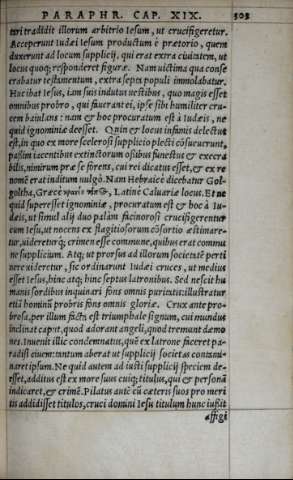 PARAPHR. CAP. XIX. 503
teri tradidit illorum arbitrio Iesum, ut crucifigeretur.
Acceperunt Iudæi Iesum productum è prætorio, quem
duxerunt ad locum supplicij, qui erat extra ciuitatem, ut
locus quoq; responderet figuræ. Nam uictima qua conse
crabatur testamentum, extra septa populi immolabatur.
Huc ibat Iesus, iam suis indutus uestibus, quo magis esset
omnibus probro, qui fuerant ei, ipse sibi humiliter cru-
cem baiulans: nam & hoc procuratum est à Iudæis, ne
quid ignominiæ deesset. Quin & locus infamis delectus
est, in quo ex more scelerosi supplicio plecti cōsueuerunt,
passim iacentibus extinctorum ossibus funestus & execra
bilis, nimirum præ se ferens, cui rei dicatus esset, & ex re
nomē erat inditum uulgò. Nam Hebraicè dicebatur Gol-
goltha, Græcè Latinè Caluariæ locus. Et ne
quid superesset ignominiæ, procuratum est & hoc à Iu-
dæis, ut simul alij duo palàm facinorosi crucifigerentur
cum Iesu, ut nocens ex flagitiosorum cōsortio æstimare-
tur, uidereturq; crimen esse commune, quibus erat commu
ne supplicium. Atq; ut prorsus ad illorum societatē perti
nere uideretur, sic ordinarunt Iudæi cruces, ut medius
esset Iesus, hinc atq; hinc septus latronibus. Sed nescit hu
manis sordibus inquinari fons omnis puritatis: illustratur
etiā hominū probris fons omnis gloriæ. Crux ante pro-
brosa, per illum facta est triumphale signum, cui mundus
inclinat caput, quod adorant angeli, quod tremunt dæmo
nes. Inuenit illic condemnatus, quē ex latrone faceret pa-
radisi ciuem: tantum aberat ut supplicij societas contami-
naret ipsum. Ne quid autem ad iusti supplicij speciem de-
esset, additus est ex more suus cuiq; titulus, qui & personā
indicaret, & crimē. Pilatus autē cū cæteris suos pro meri
tis addidisset titulos, cruci domini Iesu titulum hunc iußit
affigi